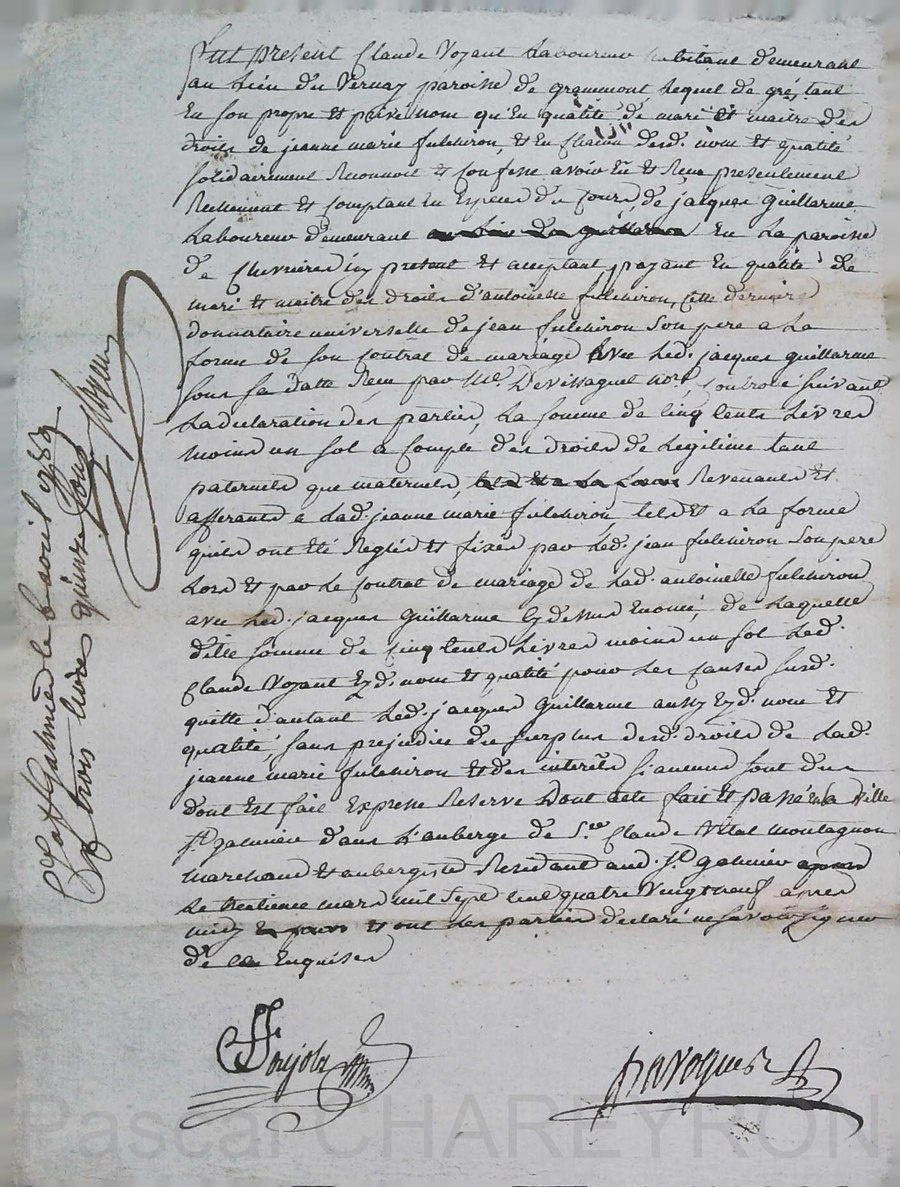 fut present Claude Voyant Laboureur habitant demeurant
au lieu du Vernay paroisse de grammont, lequel de gré, tant
En son propre et privé nom qu'En qualité de mari et maitre des
droits de jeanne marie fulchiron, et en Chacun desd. nom et qualité
solidairement Reconnoit et Confesse avoir Eu et Reçu presentement
Reellement et Comptant En Especes du Cours, de jacques Guillarme
Laboureur demeurant au lieu du guillarme En La paroisse
de Chevrieres icy present et acceptant, payant En qualité de
mari et maitre des droits d'antoinette fulchiron, cette derniere
donnataire universelle de jean fulchiron son pere a La
forme de son Contrat de mariage avec Led. jacques guillarme
sous sa datte Reçu par Me. Devissaguet nore, Controlé suivant
La declaration des parties, La somme de Cinq Cents Livres
moins un sol a Compte des droits de Legitime tant
paternels que maternels, Revenants et
afferants a Lad. jeanne marie fulchiron tels et a La forme
quils ont été Reglés et fixés par Led. jean fulchiron son pere
Lors et par Le Contrat de mariage de Lad. antoinette fulchiron
avec Led. jacques Guillarme Cy dessus Enoncé, de Laquelle
ditte somme de Cinq Cents Livres moins un sol Led.
Claude Voyant Ezd. nom et qualité pour Les Causes susd.
quitte d'autant Led. jacques Guillarme aussy Ezd. nom et
qualité, sans prejudice du surplus desd. droits de Lad.
jeanne marie fulchiron et des interêts si aucuns sont dus
dont Est fait Expresse Reserve Dont acte fait et passé en la Ville
St. galmier dans L'auberge de Sr. Claude Vital montagnon
marchand et aubergiste Residant aud. St. galmier
Le treizieme mars mil Sept Cent quatre Vingt neuf après
midy et ont Les parties declaré ne savoir signer
de ce Enquises
Con. a St. Galmier le 6 avril 1789
trois livres quinze sous
Pascal CHAREYRON